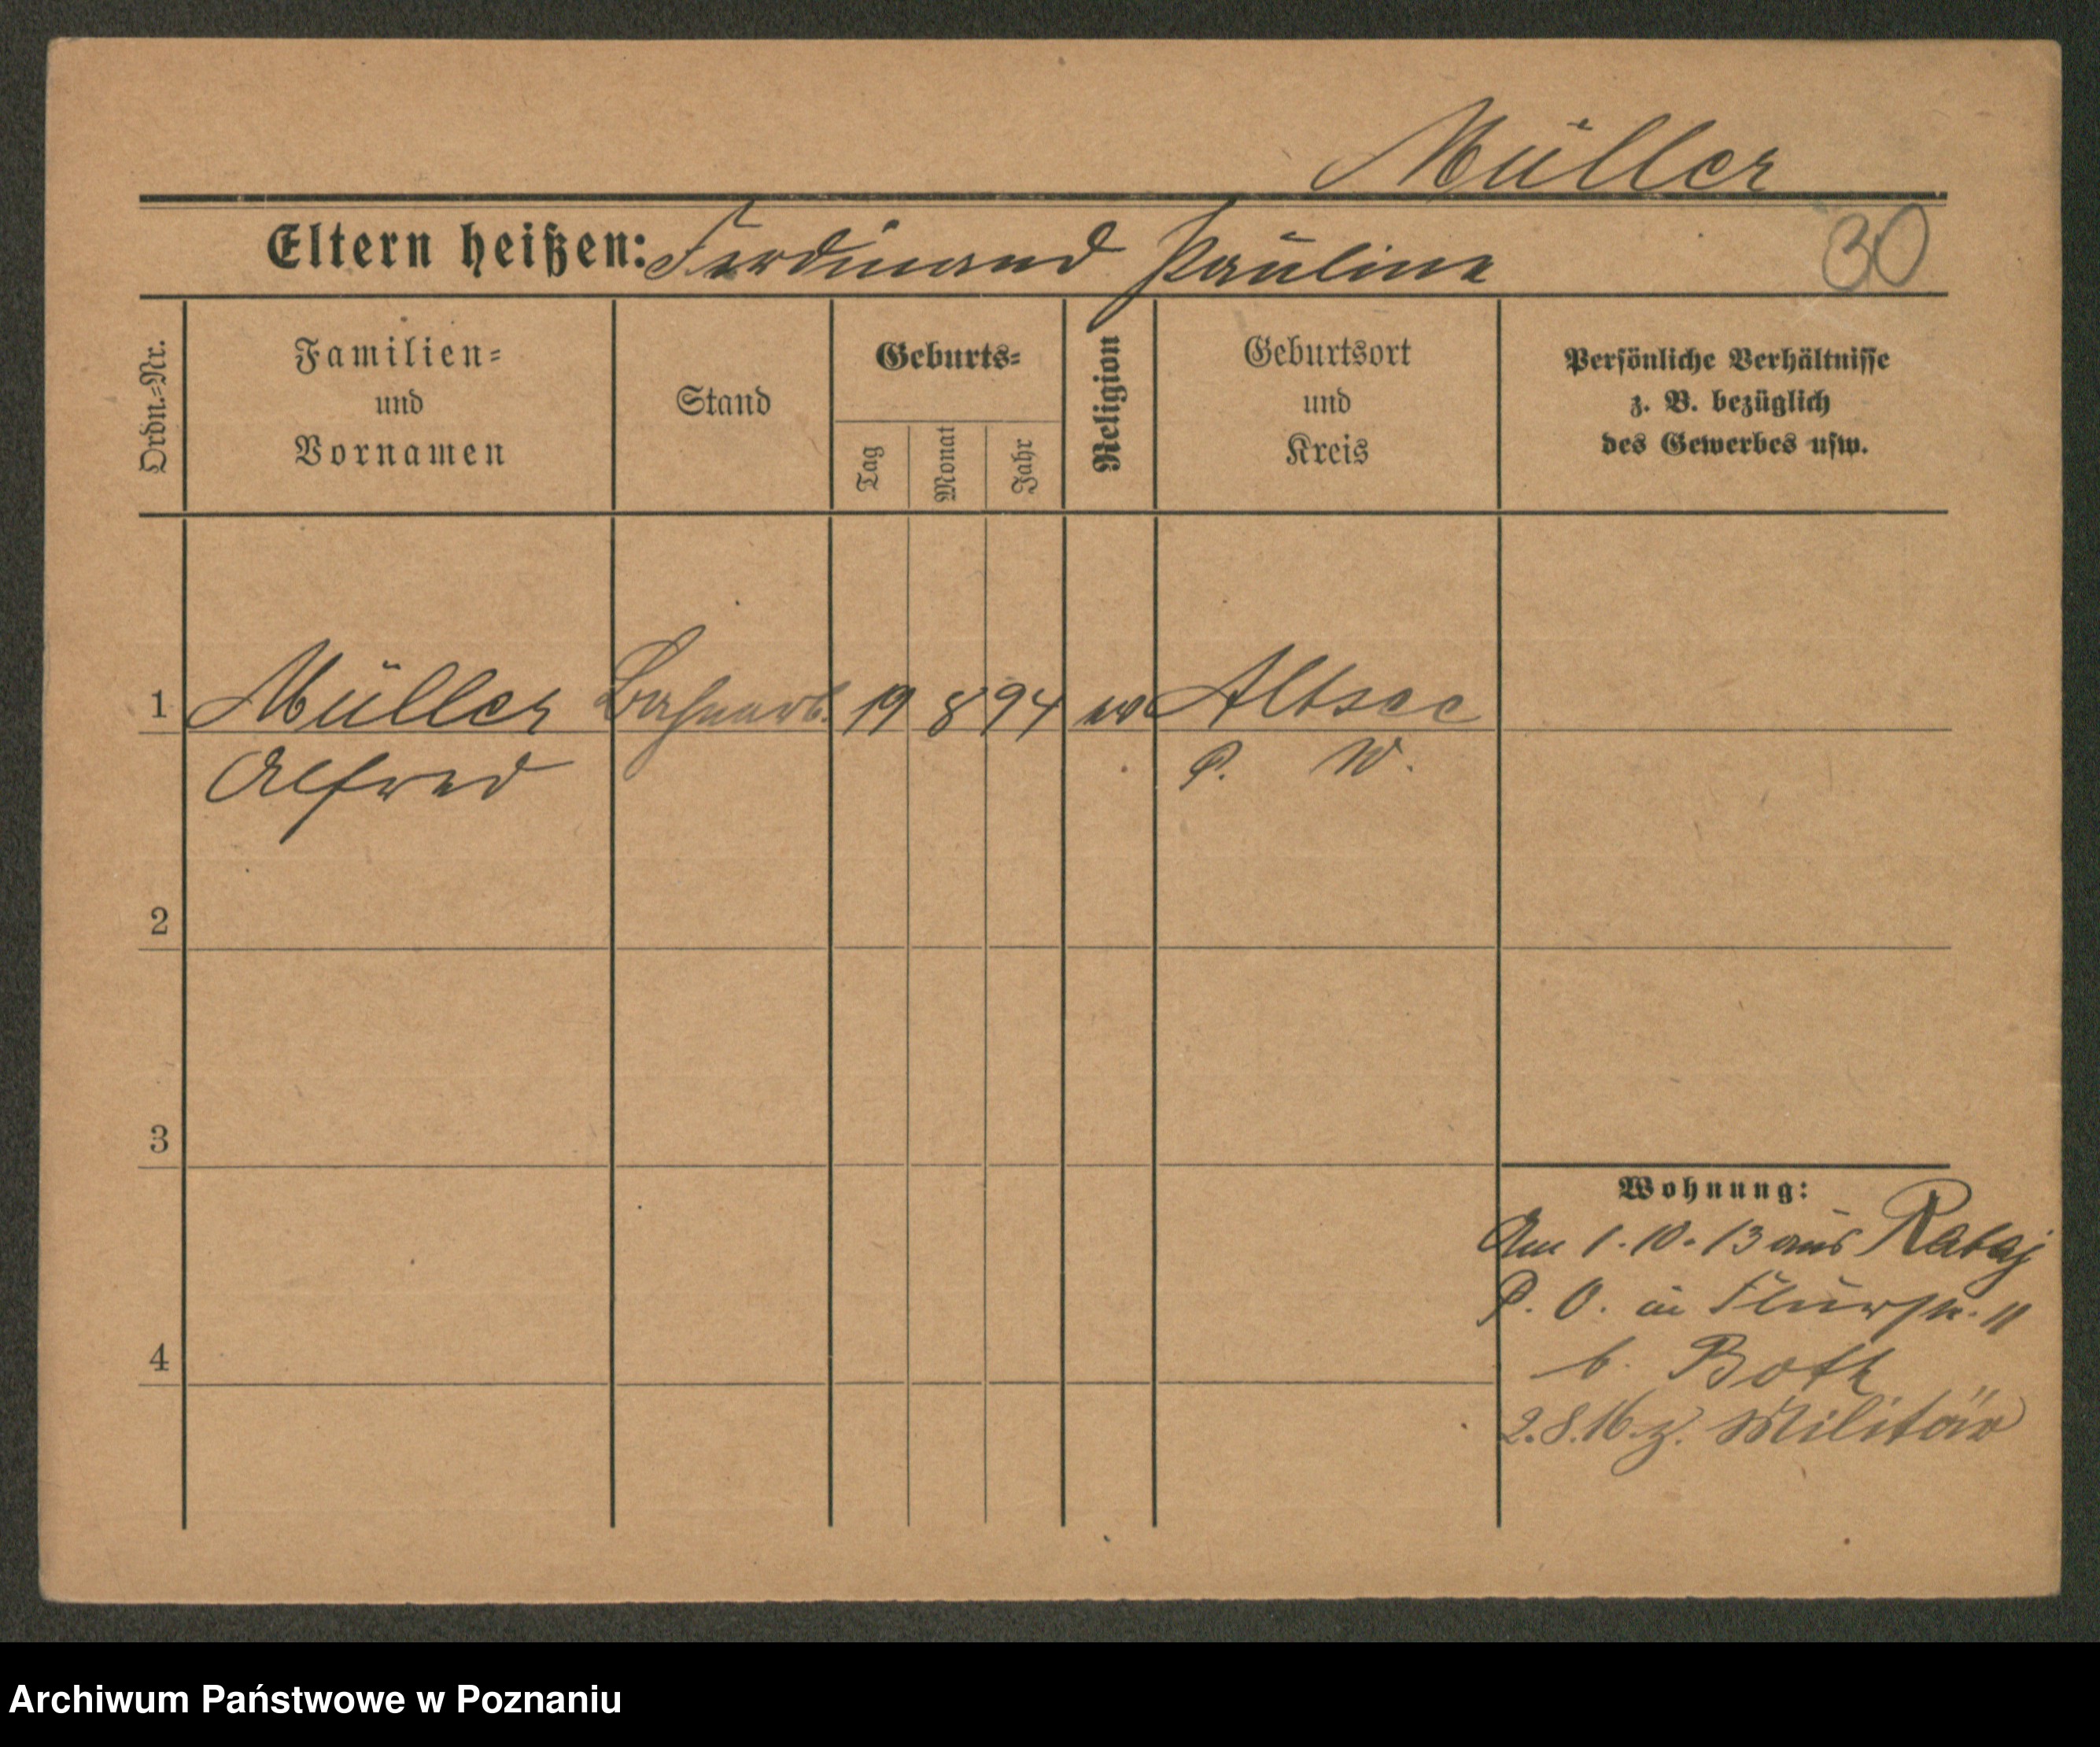 Müller
Eltern heißen: Ferdinand Pauline
30
Ordn.=Nr.
Familien=
und
Vornamen
Stand
Geburts=
Tag
Monat
Jahr
Religion
Geburtsort
und
Kreis
Persönliche Verhältnisse
z. B. bezüglich
des Gewerbes usw.
1 Müller Bahnarb. 19 8 94 ev Altsee
Alfred P. W.
2
3
4
Wohnung:
Am 1.10.13 aus Rataj
P. O. in Flurstr. 11
b. Both
2.8.16 z. Militär
Archiwum Państwowe w Poznaniu